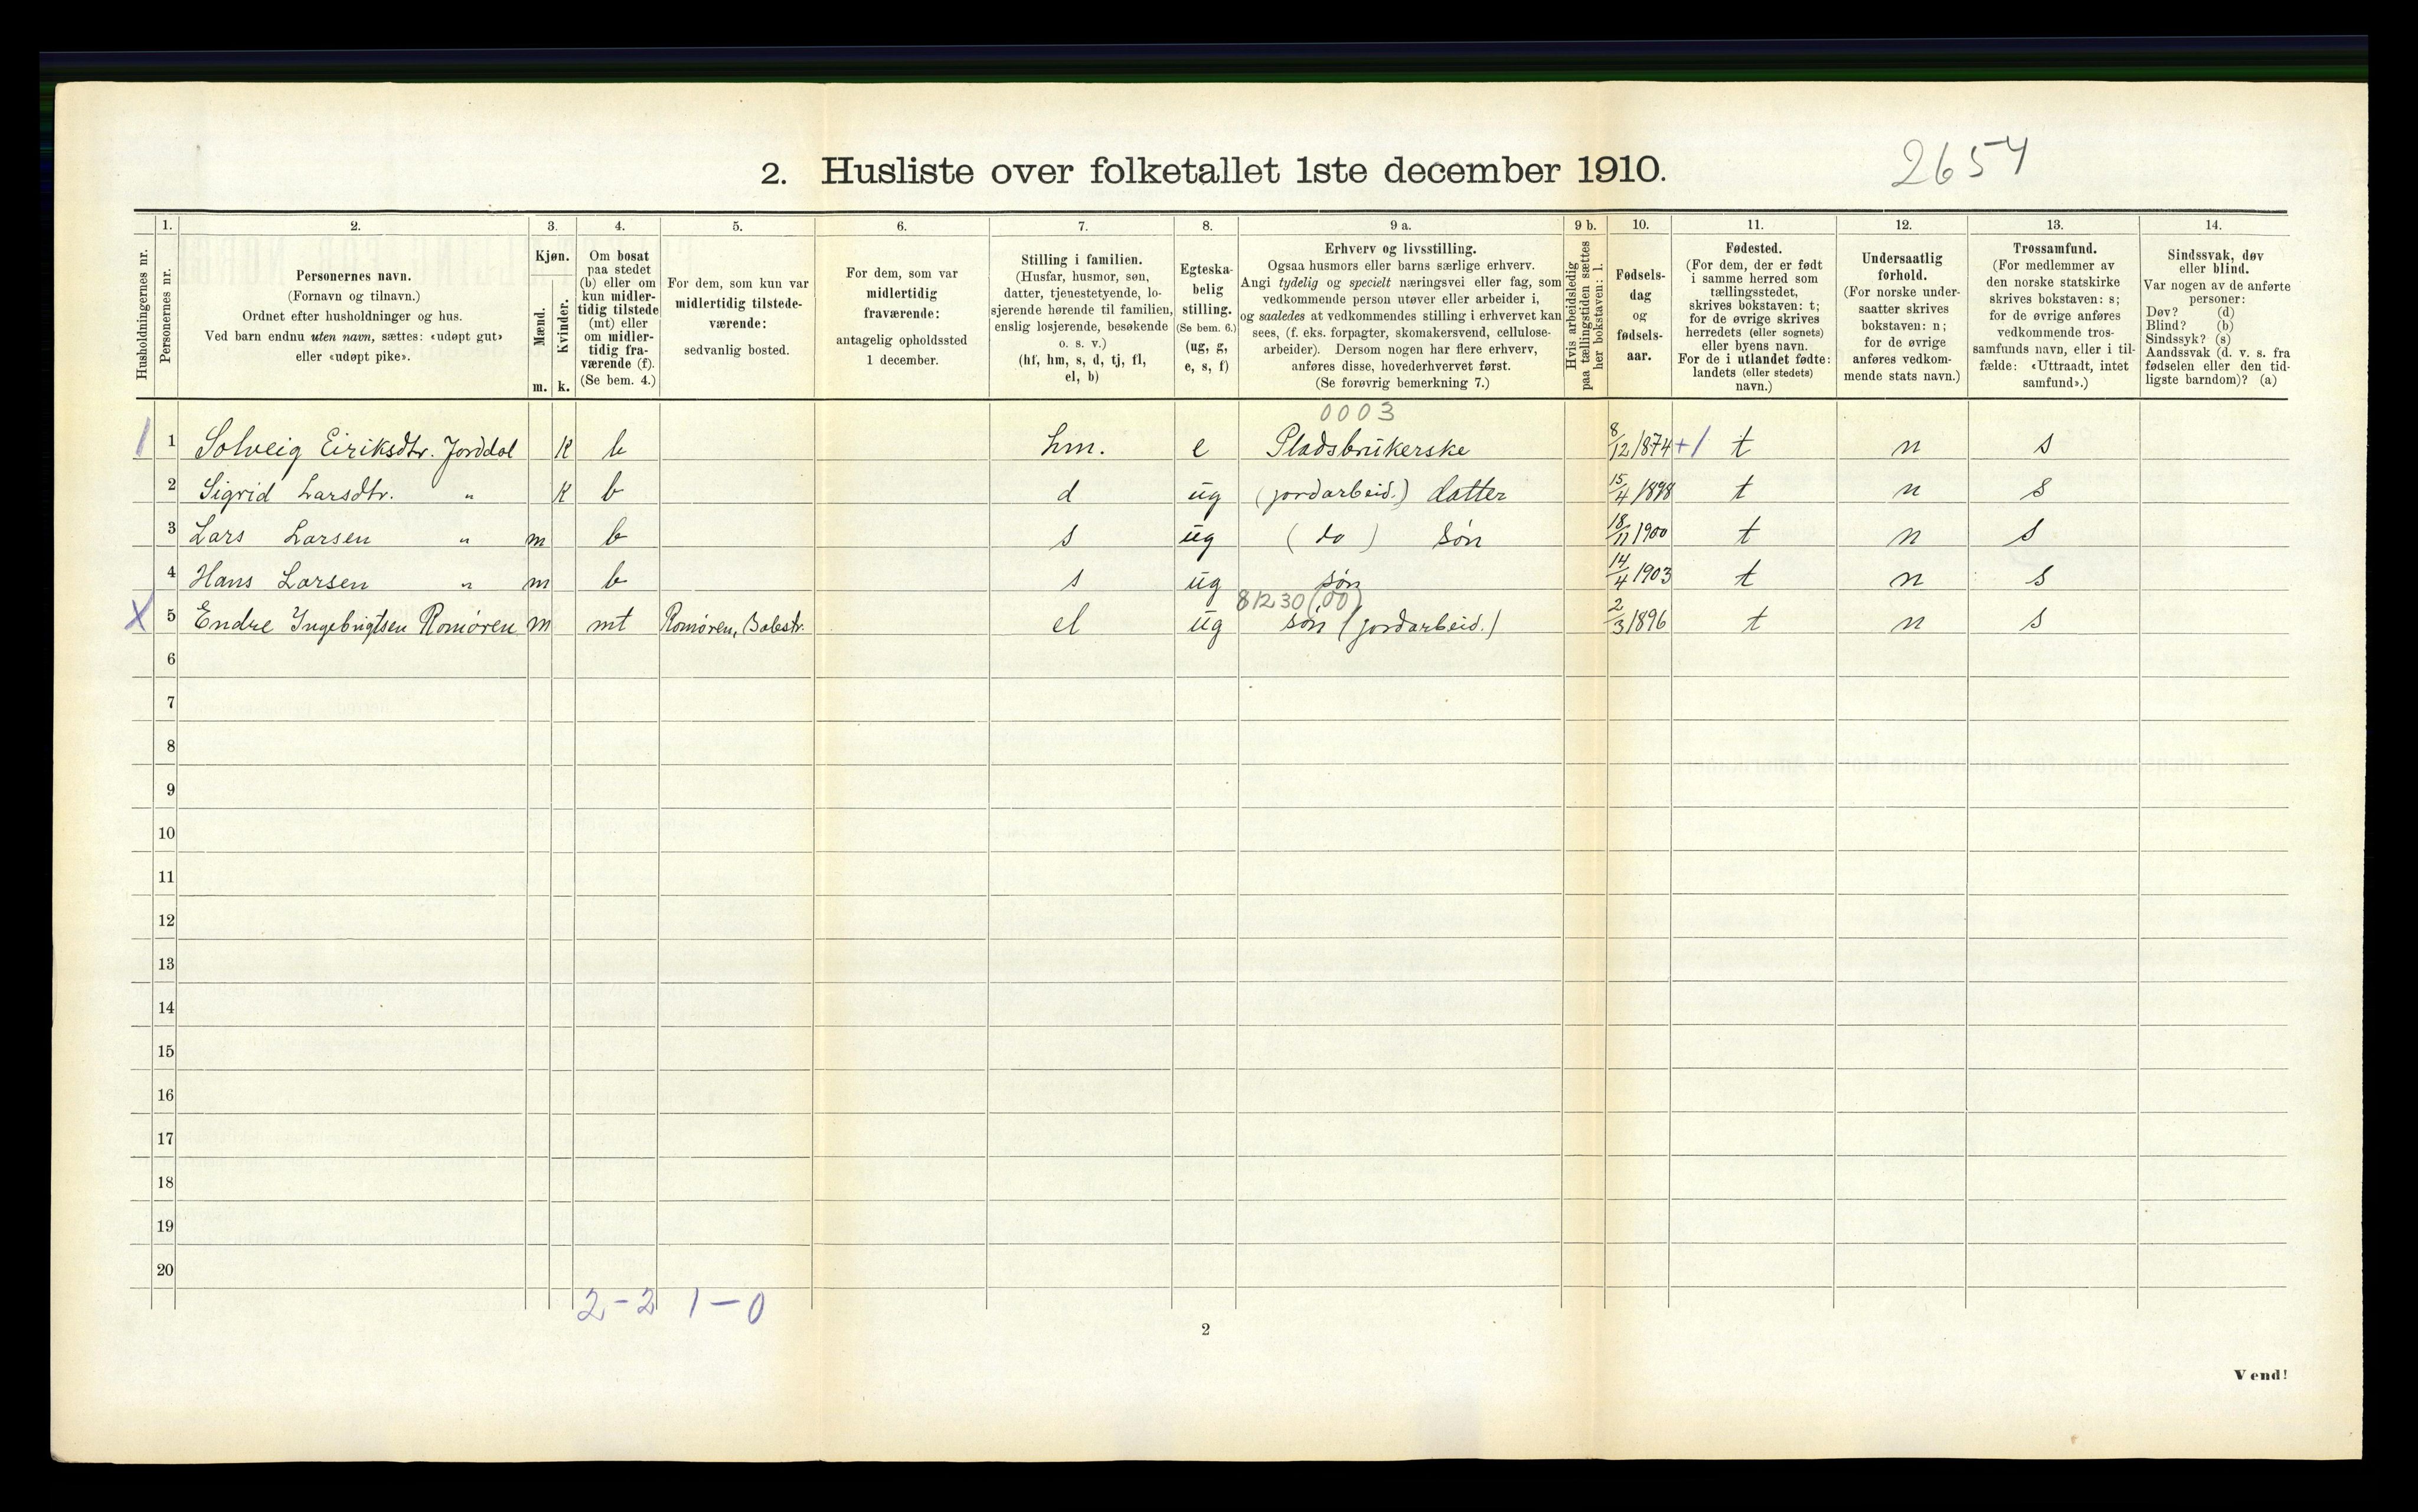 2. Husliste over folketallet 1ste december 1910.
2654
1. 2. 3. 4. 5. 6. 7. 8. 9 a. 9 b. 10. 11. 12. 13. 14.
Husholdningernes nr.
Personernes nr.
Personernes navn.
(Fornavn og tilnavn.)
Ordnet efter husholdninger og hus.
Ved barn endnu uten navn, sættes: «udøpt gut»
eller «udøpt pike».
Kjøn.
Mænd.
Kvinder.
m. k.
Om bosat
paa stedet
(b) eller om
kun midler-
tidig tilstede
(mt) eller
om midler-
tidig fra-
værende (f).
(Se bem. 4.)
For dem, som kun var
midlertidig tilstede-
værende:
sedvanlig bosted.
For dem, som var
midlertidig
fraværende:
antagelig opholdssted
1 december.
Stilling i familien.
(Husfar, husmor, søn,
datter, tjenestetyende, lo-
sjerende hørende til familien,
enslig losjerende, besøkende
o. s. v.)
(hf, hm, s, d, tj, fl,
el, b)
Egteska-
belig
stilling.
(Se bem. 6.)
(ug, g,
e, s, f)
Erhverv og livsstilling.
Ogsaa husmors eller barns særlige erhverv.
Angi tydelig og specielt næringsvei eller fag, som
vedkommende person utøver eller arbeider i,
og saaledes at vedkommendes stilling i erhvervet kan
sees, (f. eks. forpagter, skomakersvend, cellulose-
arbeider). Dersom nogen har flere erhverv,
anføres disse, hovederhvervet først.
(Se forøvrig bemerkning 7.)
Hvis arbeidsledig
paa tællingstiden sættes
her bokstaven: l.
Fødsels-
dag
og
fødsels-
aar.
Fødested.
(For dem, der er født
i samme herred som
tællingsstedet,
skrives bokstaven: t;
for de øvrige skrives
herredets (eller sognets)
eller byens navn.
For de i utlandet fødte:
landets (eller stedets)
navn.)
Undersaatlig
forhold.
(For norske under-
saatter skrives
bokstaven: n;
for de øvrige
anføres vedkom-
mende stats navn.)
Trossamfund.
(For medlemmer av
den norske statskirke
skrives bokstaven: s;
for de øvrige anføres
vedkommende tros-
samfunds navn, eller i til-
fælde: «Uttraadt, intet
samfund».)
Sindssvak, døv
eller blind.
Var nogen av de anførte
personer:
Døv? (d)
Blind? (b)
Sindssyk? (s)
Aandssvak (d. v. s. fra
fødselen eller den tid-
ligste barndom)? (a)
0003
1 1 Solveig Eiriksdtr. Jorddal K b hm. e Pladsbrukerske 8/12 1874 +1 t n s
2 Sigrid Larsdtr. " K b d ug (jordarbeid.) datter 15/4 1898 t n s
3 Lars Larsen " m b s ug (do) søn 18/11 1900 t n s
4 Hans Larsen " m b s ug søn 14/4 1903 t n s
81230(00)
X 5 Endre Ingebrigtsen Romøren m mt Romøren, Balestr. el ug søn (jordarbeid.) 2/3 1896 t n s
6
7
8
9
10
11
12
13
14
15
16
17
18
19
20
2-2 1-0
2
Vend!